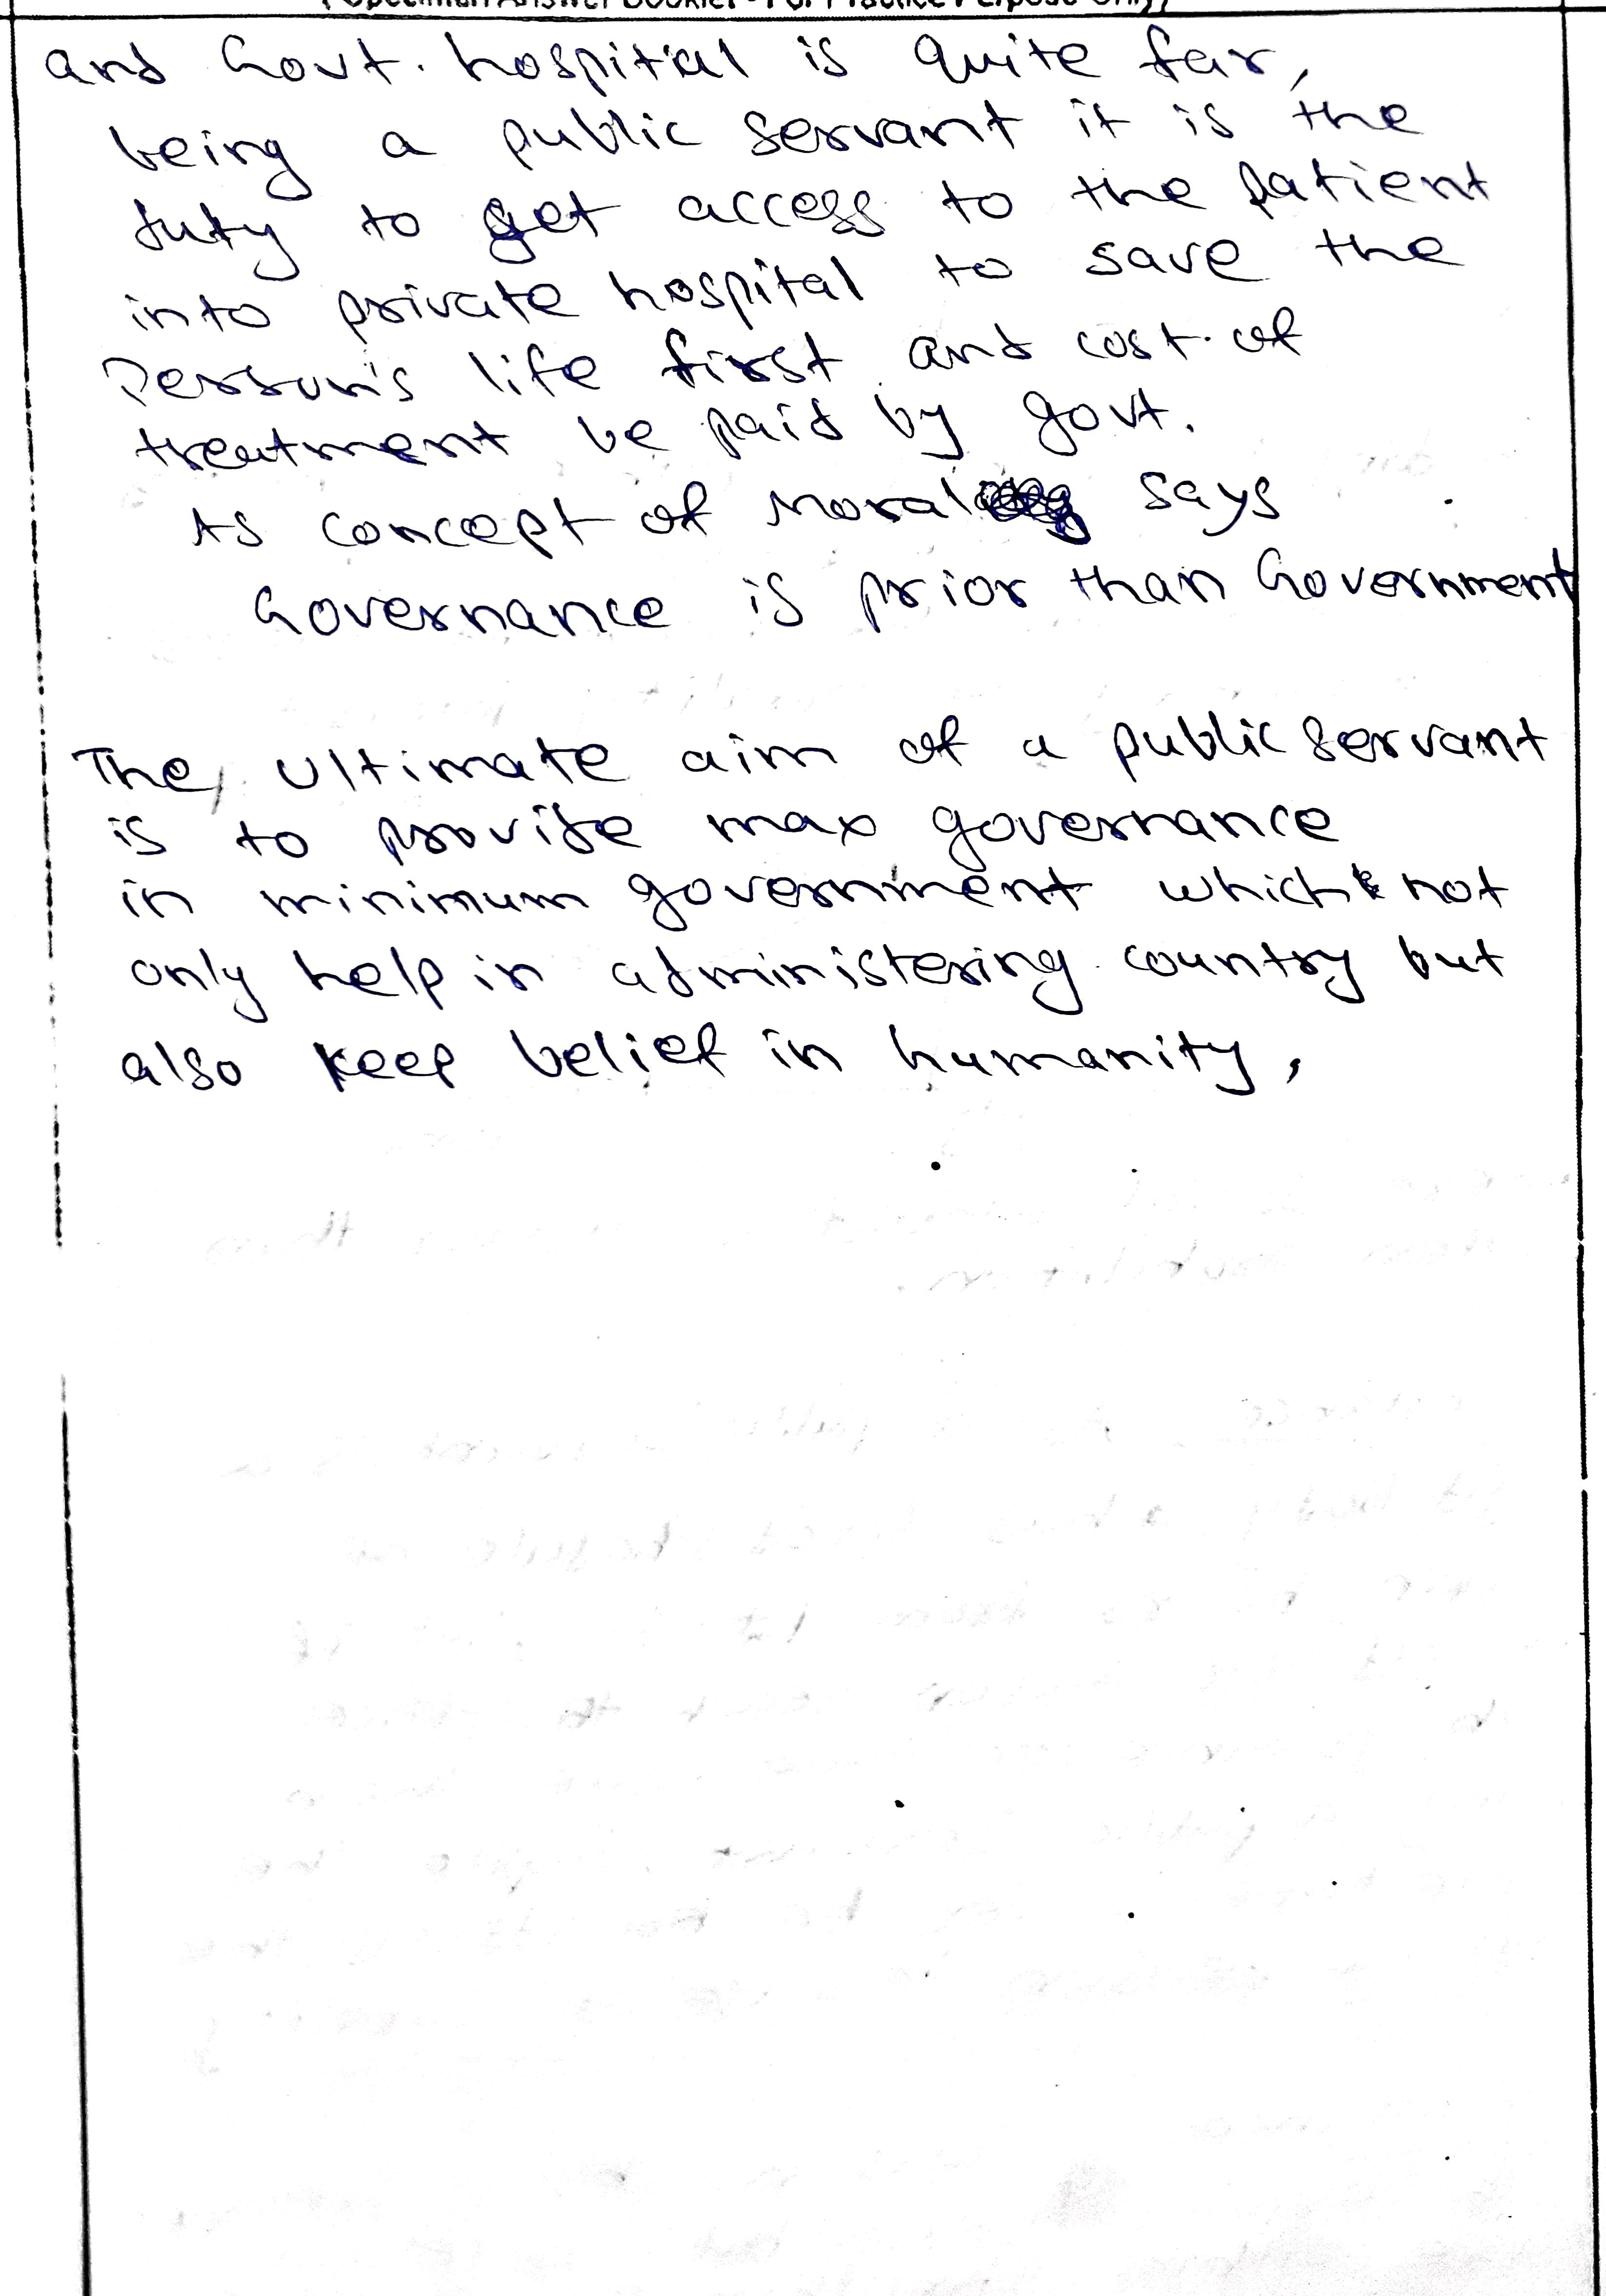 (Specimen Answer Booklet - For Practice Purpose Only)
and Govt. hospital is quite far,
being a public servant it is the
duty to get access to the patient
into private hospital to save the
Person's life first and cost of
treatment be paid by govt.
As concept of moral says
Governance is prior than Government
The, ultimate aim of a public servant
is to provide max governance
in minimum government which not
only help in administering country but
also keep belief in humanity,